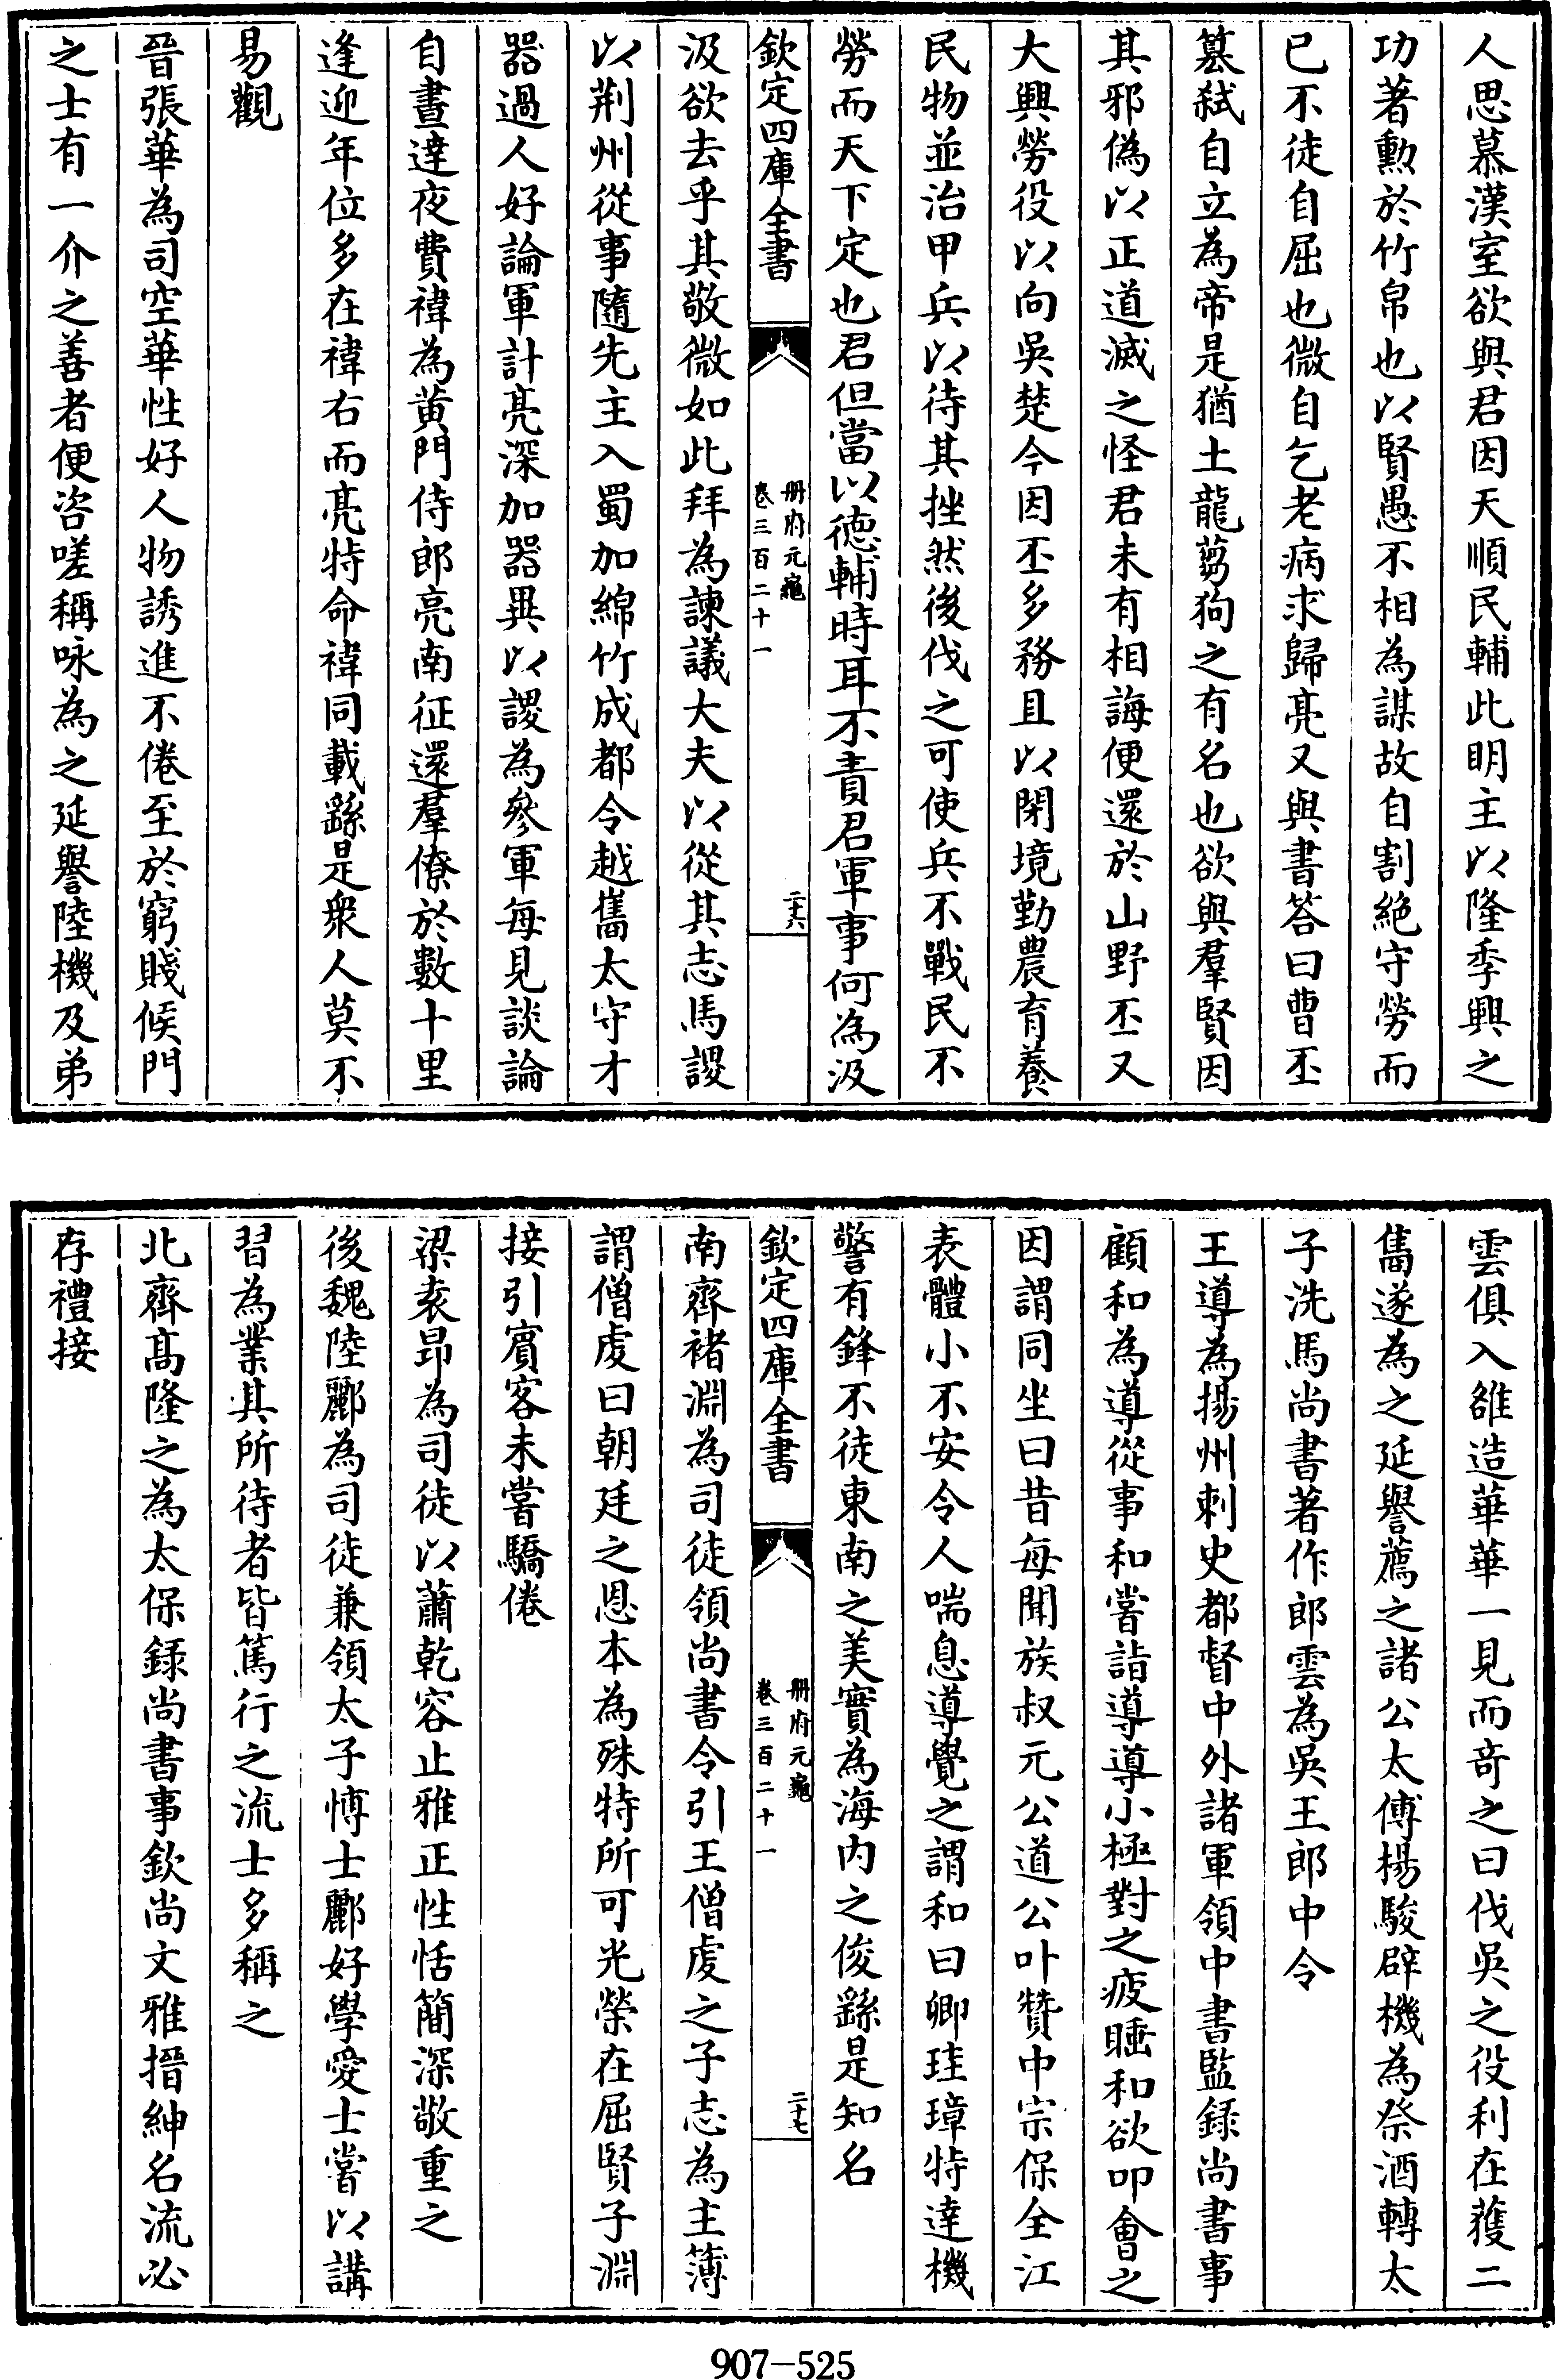 人思慕漢室欲與君因天順民輔此明主以隆季興之
功著勲於竹帛也以賢愚不相為謀故自割絶守勞而
已不徒自屈也微自乞老病求歸亮又與書答曰曹丕
簒弑自立為帝是猶土龍芻狗之有名也欲與羣賢因
其邪偽以正道滅之怪君未有相誨便還於山野丕又
大興勞役以向吳楚今因丕多務且以閉境勤農育養
民物並治甲兵以待其挫然後伐之可使兵不戰民不
勞而天下定也君但當以徳輔時耳不責君軍事何為汲
欽定四庫全書
册府元龜
卷三百二十一
二十六
汲欲去乎其敬微如此拜為諫議大夫以從其志馬謖
以荆州從事隨先主入蜀加綿竹成都令越嶲太守才
器過人好論軍計亮深加器異以謖為參軍每見談論
自晝達夜費禕為黄門侍郎亮南征還羣僚於數十里
逢迎年位多在禕右而亮特命禕同載繇是衆人莫不
易觀
晉張華為司空華性好人物誘進不倦至於窮賤候門
之士有一介之善者便咨嗟稱咏為之延譽陸機及弟
雲俱入雒造華華一見而竒之曰伐吳之役利在獲二
雋遂為之延譽薦之諸公太傅楊駿辟機為祭酒轉太
子洗馬尚書著作郎雲為吳王郎中令
王導為揚州刺史都督中外諸軍領中書監録尚書事
顧和為導從事和嘗詣導導小極對之疲睡和欲叩會之
因謂同坐曰昔每聞族叔元公道公叶贊中宗保全江
表體小不安令人喘息導覺之謂和曰卿珪璋特達機
警有鋒不徒東南之美實為海内之俊繇是知名
欽定四庫全書
册府元龜
卷三百二十一
二十七
南齊褚淵為司徒領尚書令引王僧虔之子志為主簿
謂僧虔曰朝廷之恩本為殊特所可光榮在屈賢子淵
接引賓客未嘗驕倦
梁袁昂為司徒以蕭乾容止雅正性恬簡深敬重之
後魏陸酈為司徒兼領太子博士酈好學愛士嘗以講
習為業其所待者皆篤行之流士多稱之
北齊髙隆之為太保録尚書事欽尚文雅搢紳名流必
存禮接
907-525